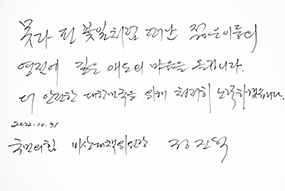 못다 핀 꽃잎처럼 떠난 젊은이들의
영전에 깊은 애도의 마음을 올립니다.
더 안전한 대한민국을 위해 철저히 노력하겠습니다.
2022. 10. 31
국민의힘 비상대책위원장 정진석